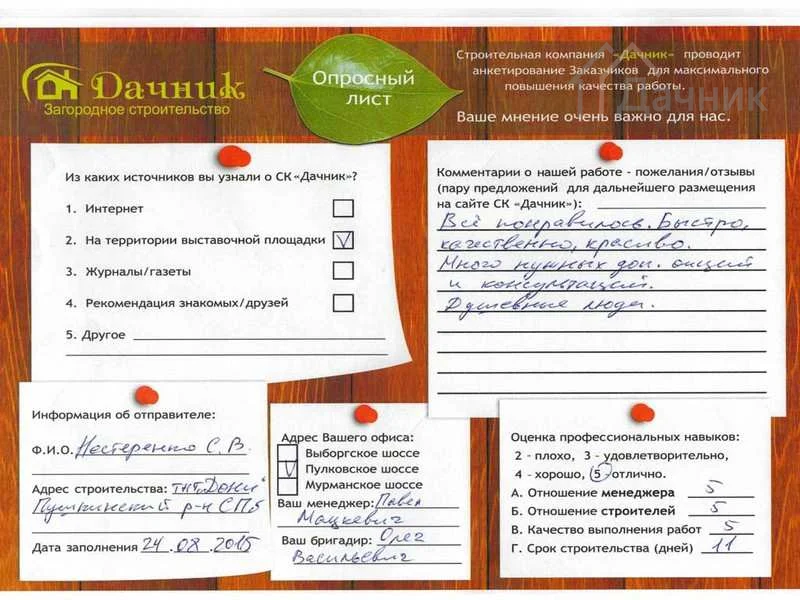 Дачник
Загородное строительство
Опросный
лист
Строительная компания «Дачник» проводит
анкетирование Заказчиков для максимального
повышения качества работы.
Ваше мнение очень важно для нас.
Дачник
Из каких источников вы узнали о СК «Дачник»?
1. Интернет
2. На территории выставочной площадки V
3. Журналы/газеты
4. Рекомендация знакомых/друзей
5. Другое
Комментарии о нашей работе - пожелания/отзывы
(пару предложений для дальнейшего размещения
на сайте СК «Дачник»):
Всё понравилось. Быстро,
качественно, красиво.
Много нужных доп. опций
и консультаций.
Душевные люди.
Информация об отправителе:
Ф.И.О. Нестеренко С. В.
Адрес строительства: тнт "Дони"
Пушкинский р-н СПб
Дата заполнения 24.08.2015
Адрес Вашего офиса:
Выборгское шоссе
V Пулковское шоссе
Мурманское шоссе
Ваш менеджер: Павел
Мацкевич
Ваш бригадир: Олег
Васильевич
Оценка профессиональных навыков:
2 - плохо, 3 - удовлетворительно,
4 - хорошо, 5 - отлично.
А. Отношение менеджера 5
Б. Отношение строителей 5
В. Качество выполнения работ 5
Г. Срок строительства (дней) 11